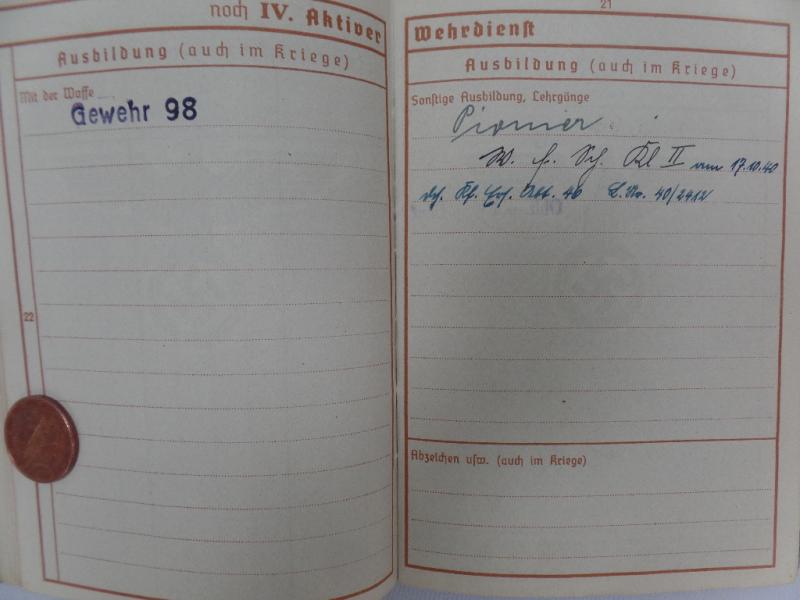 noch IV. Aktiver
Ausbildung (auch im Kriege)
Mit der Waffe
Gewehr 98
22
21
Wehrdienst
Ausbildung (auch im Kriege)
Sonstige Ausbildung, Lehrgänge
Pionier
W. f. Sch. Kl II am 17.10.40
dch. Kf. Ers. Abt. 46 L. No. 40/2412
Abzeichen usw. (auch im Kriege)